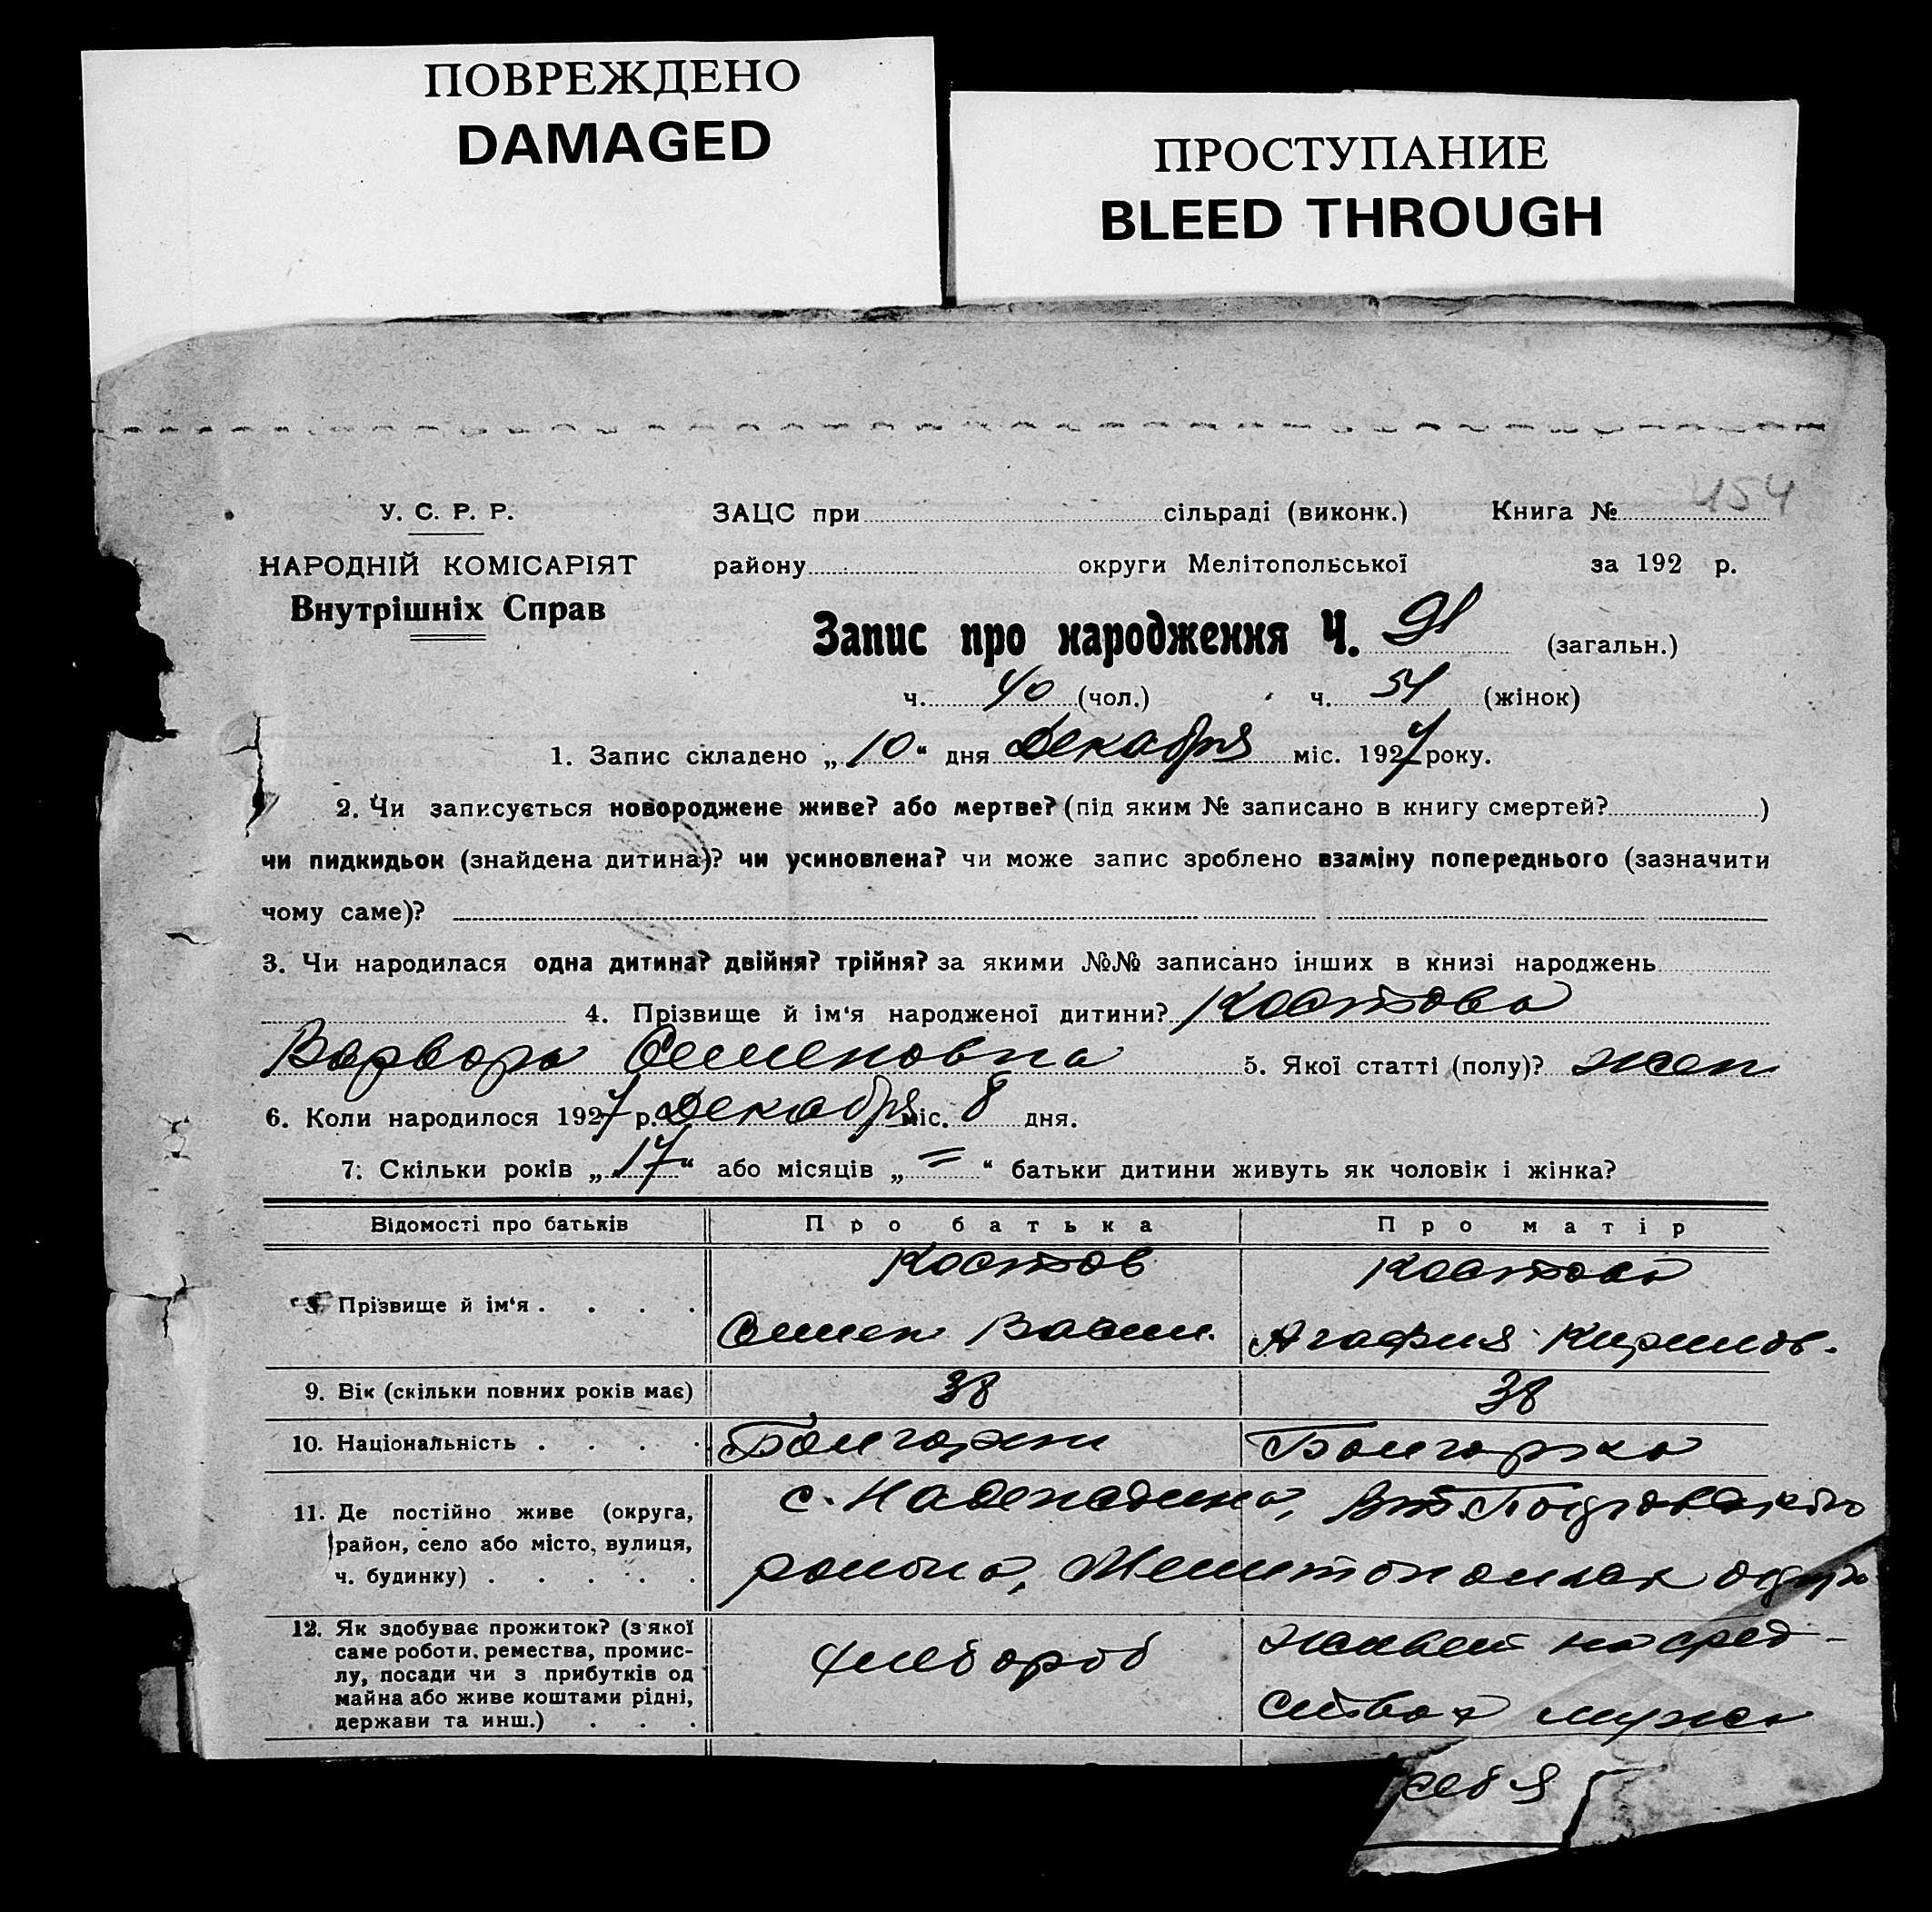 ПОВРЕЖДЕНО
DAMAGED
ПРОСТУПАНИЕ
BLEED THROUGH
454
У. С. Р. Р.
ЗАЦС при сільраді (виконк.) Книга №
НАРОДНІЙ КОМІСАРІЯТ
району округи Мелітопольської за 192 р.
Внутрішніх Справ
Запис про народження Ч. 91 (загальн.)
ч. 40 (чол.) ч. 51 (жінок)
1. Запис складено „ 10 “ дня Декабря міс. 1927 року.
2. Чи записується новороджене живе? або мертве? (під яким № записано в книгу смертей? )
чи пидкидьок (знайдена дитина)? чи усиновлена? чи може запис зроблено взаміну попереднього (зазначити
чому саме)?
3. Чи народилася одна дитина? двійня? трійня? за якими №№ записано інших в книзі народжень
4. Прізвище й ім'я народженої дитини? Костова
Варвара Семеновна 5. Якої статті (полу)? жен
6. Коли народилося 1927 р. Декабря міс. 8 дня.
7. Скільки років „ 17 “ або місяців „ = “ батьки дитини живуть як чоловік і жінка?
Відомості про батьків Про батька Про матір
8. Прізвище й ім'я . . . . Костов Костова
Семен Васил. Агафия Кирилов.
9. Вік (скільки повних років має) 38 38
10. Національність . . . . Болгарин Болгарка
11. Де постійно живе (округа,
район, село або місто, вулиця,
ч. будинку) . . . . .
с.
района, Мелитопольск округ
12. Як здобуває прожиток? (з якої
саме роботи, ремества, промис-
лу, посади чи з прибутків од
майна або живе коштами рідні,
держави та инш.) . . .
хлебороб
на сред-
ствах мужа